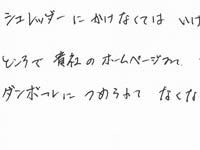 シュレッダーにかけなくては いけ
ところで 貴社のホームページで、
ダンボールに つめられて なくな